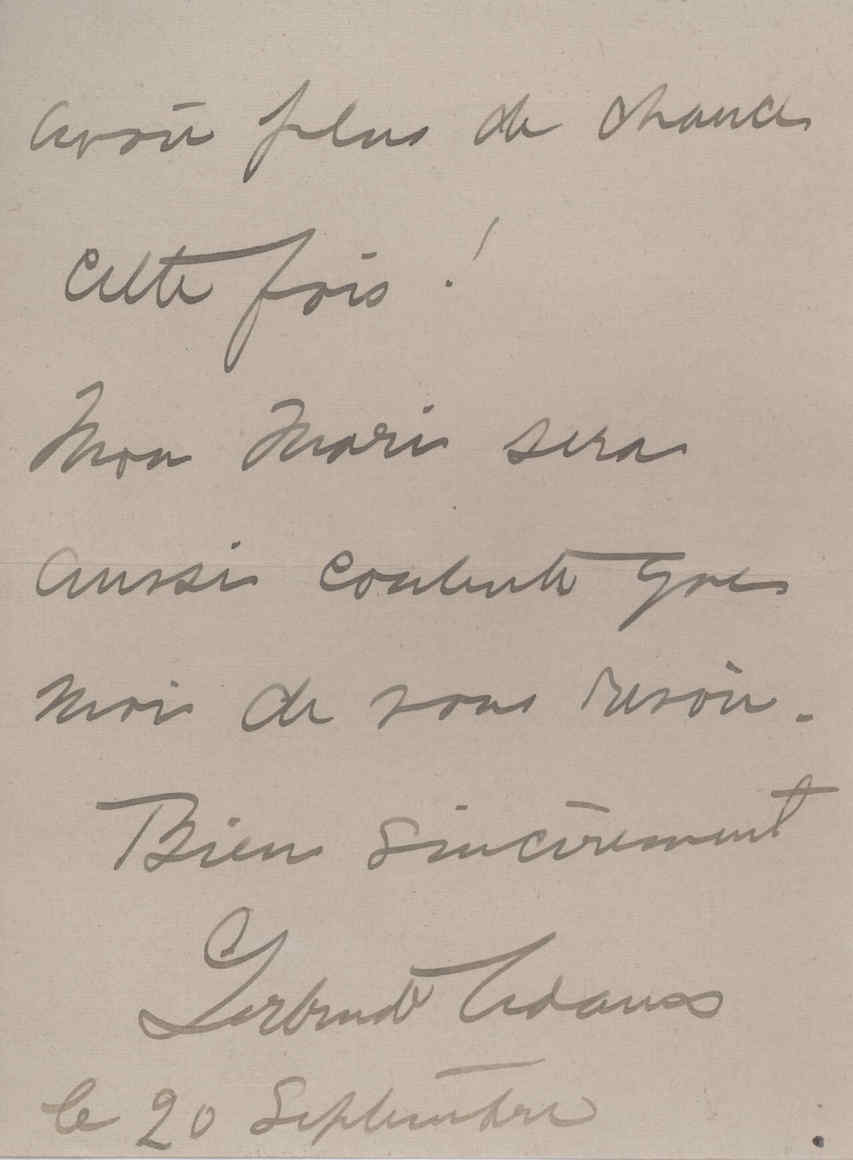 avoir plus de chance
cette fois !
Mon Mari sera
aussi contente que
moi de vous revoir.
Bien sincèrement
Gertrude
le 20 Septembre